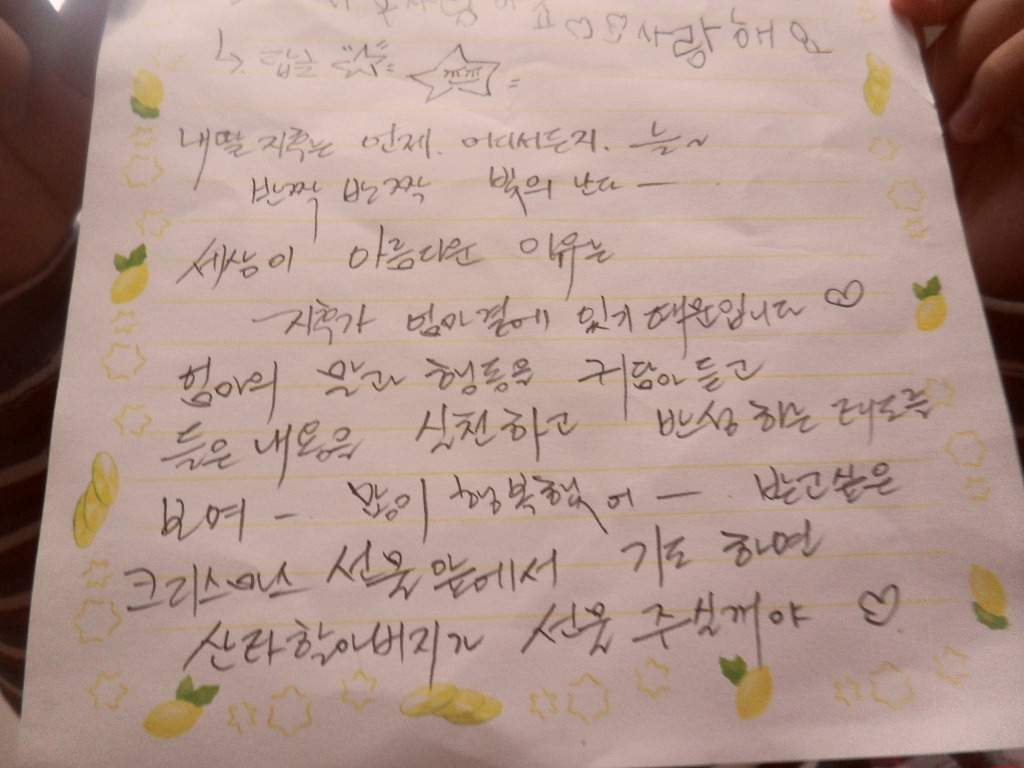 사랑해요
↳ 답글
내딸 지후는 언제. 어디서든지. 늘~
반짝 반짝 빛의 난다 —
세상이 아름다운 이유는
지후가 엄마곁에 있기 때문입니다 ♡
엄마의 말과 행동을 귀담아 듣고
들은 내용을 실천하고 반성하는 태도를
보여 – 많이 행복했어 — 받고싶은
크리스마스 선물 앞에서 기도 하면
산타할아버지가 선물 주실꺼야 ♡